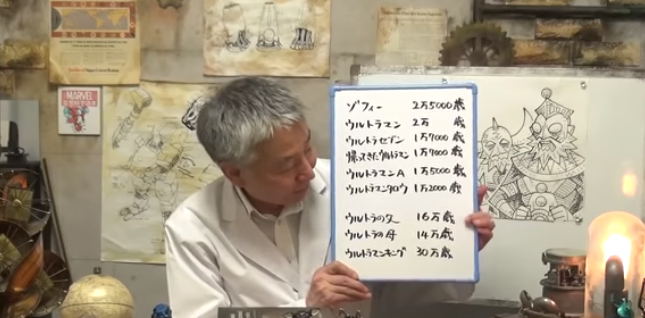 ゾフィー 2万5000歳
ウルトラマン 2万 歳
ウルトラセブン 1万7000歳
帰ってきたウルトラマン 1万7000歳
ウルトラマンA 1万5000歳
ウルトラマンタロウ 1万2000歳
ウルトラの父 16万歳
ウルトラの母 14万歳
ウルトラマンキング 30万歳
MARVEL